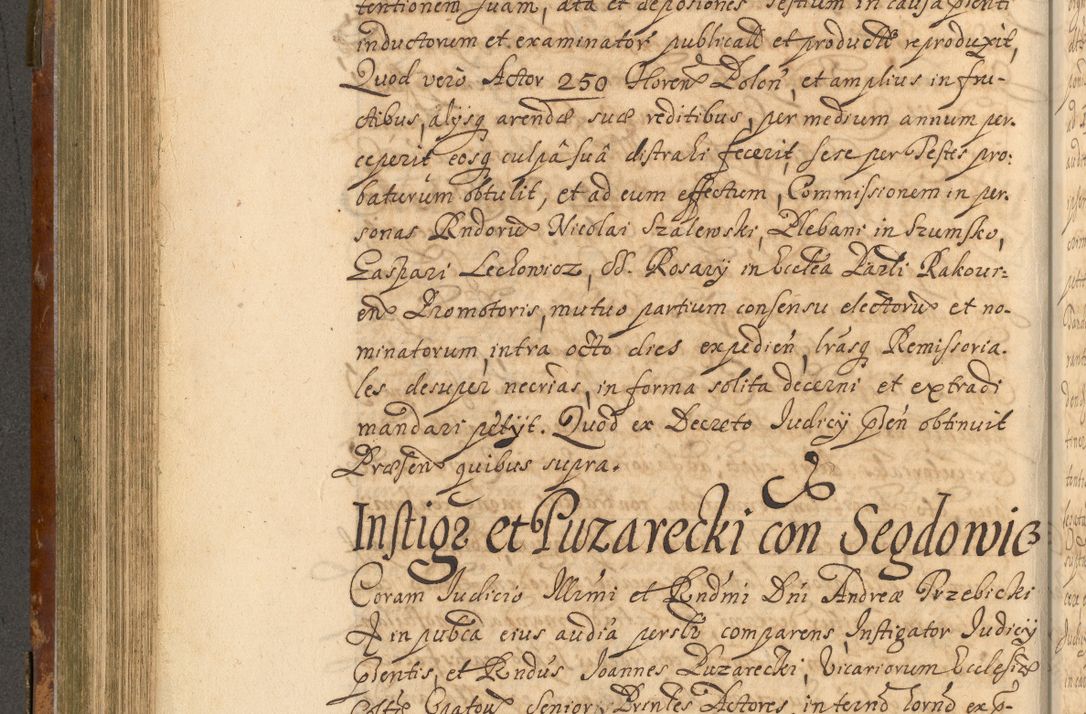 tentionem suam, ata et deposiones Testium in causa pʃenti
inductorum et examinatorʒ publicatʒ et productʒ reproduxit,
Quod verò Actor 250 Florenʒ Polonʒ, et amplius in fru-
ctibus, alÿsqʒ arendæ suæ reditibus, per medium annum per-
ceperit eosqʒ culpâ suâ distrahi fecerit, sese per Testes pro:
baturum obtulit, et ad eum effectum, Commissionem in per-
sonas Rndorũ Nicolai Szalewski, Plebani in Szumsko,
Gaspari Lechowicz, SS. Rosarÿ in Eccłea Parłi Rakovi-
enʒ Promotoris, mutuo partium consensu electorũ et no-
minatorum, intra octo dies expedieñ, lrasqʒ Remissoria-
les desuper necrias, in forma solita decerni et extradi
mandari petÿt. Quod ex Decreto Judicÿ pʃeñ obtinuit
Præsenʒ quibus supra.
Instigʒ et Puzarecki con Segdowic
Coram Judicio Illrmi et Rndmi Dñi Andreæ Trzebicki
in pubca eius audia persłr comparens, Instigator Judicÿ
pʃentis, et Rndus Joannes Puzarecki, Vicariorum Ecclesiæ
Senior, Actores, in